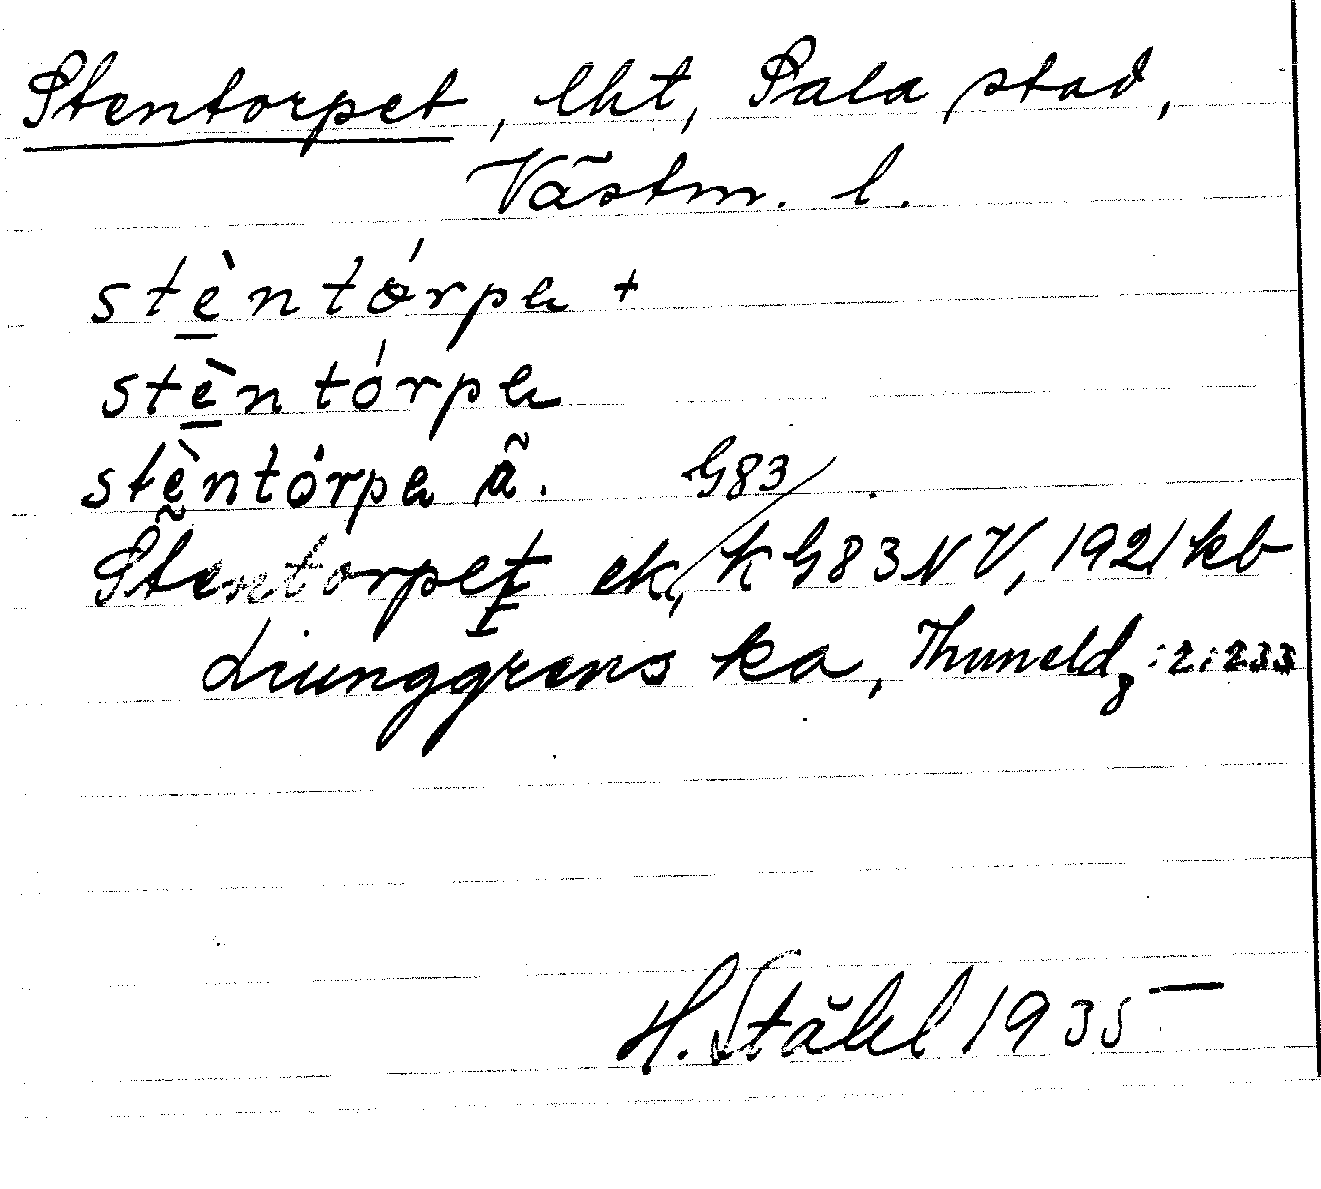 Stentorpet, lht, Sala stad,
Västm. l.
stèntórpa +
stèntórpa
stèntórpa ã. G83
Stentorpet ek, k G83 NV, 1921 kb
Liunggrens ka, Thuneld :2:233
H. Ståhl 1935